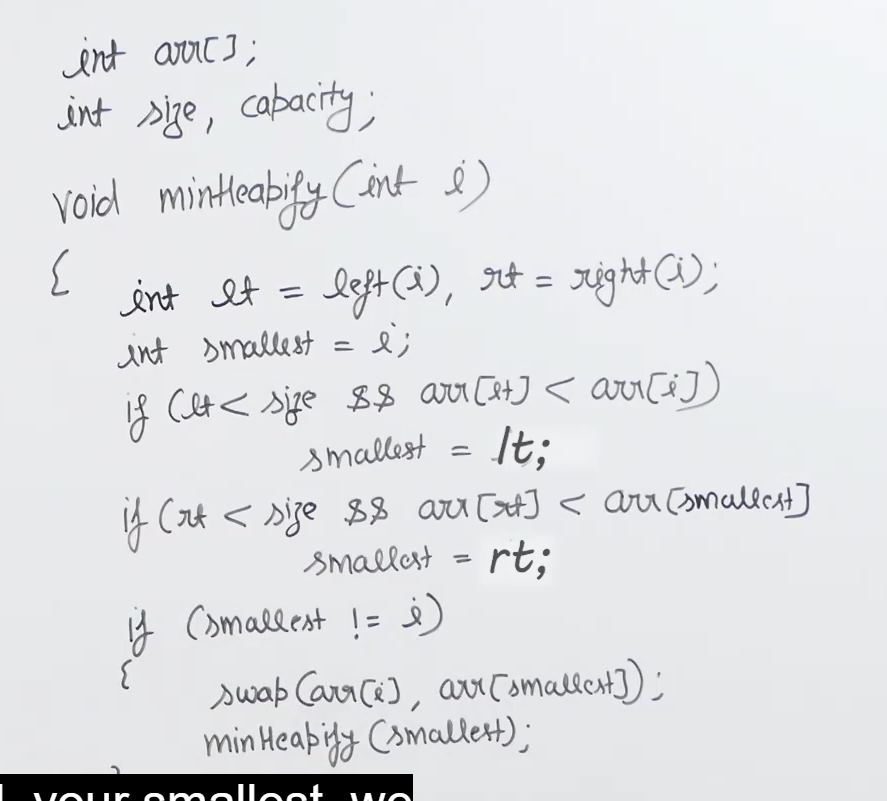 int arr[];
int size, capacity;
void minHeapify(int i)
{
int lt = left(i), rt = right(i);
int smallest = i;
if (lt < size && arr[lt] < arr[i])
smallest = lt;
if (rt < size && arr[rt] < arr[smallest]
smallest = rt;
if (smallest != i)
{
swap(arr[i], arr[smallest]);
minHeapify(smallest);
}
your smallest, we